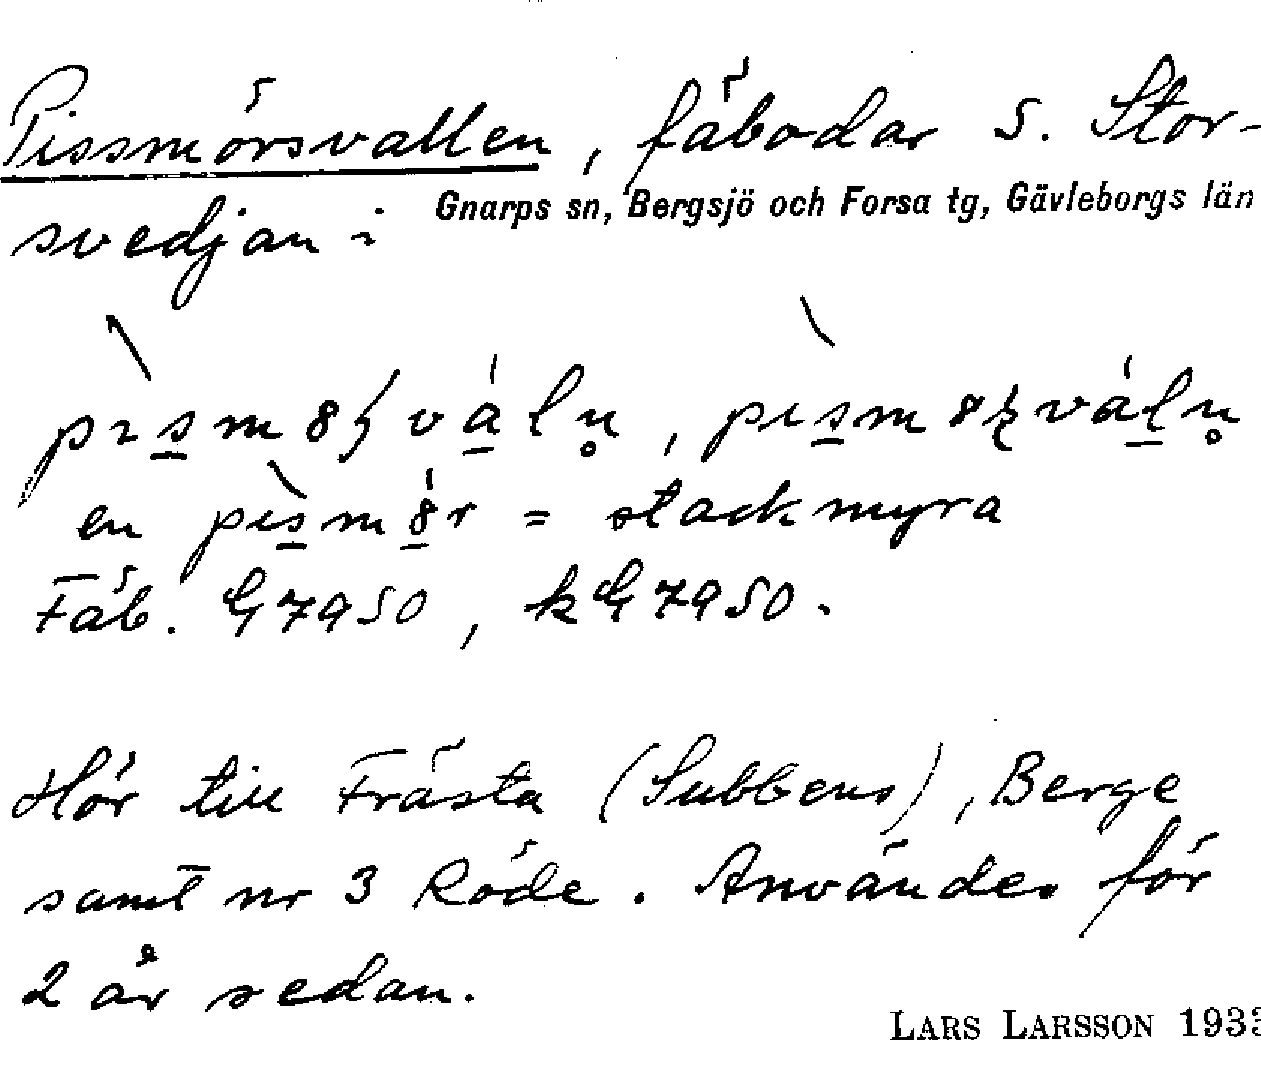 Pissmörsvallen, fäbodar S. Stor-
svedjan:
Gnarps sn, Bergsjö och Forsa tg, Gävleborgs län
en = stackmyra
Fäb. G 7950, k G 7950.
Hör till Frästa (Subbens), Berge
samt nr 3 Röde. Användes för
2 år sedan.
LARS LARSSON 193